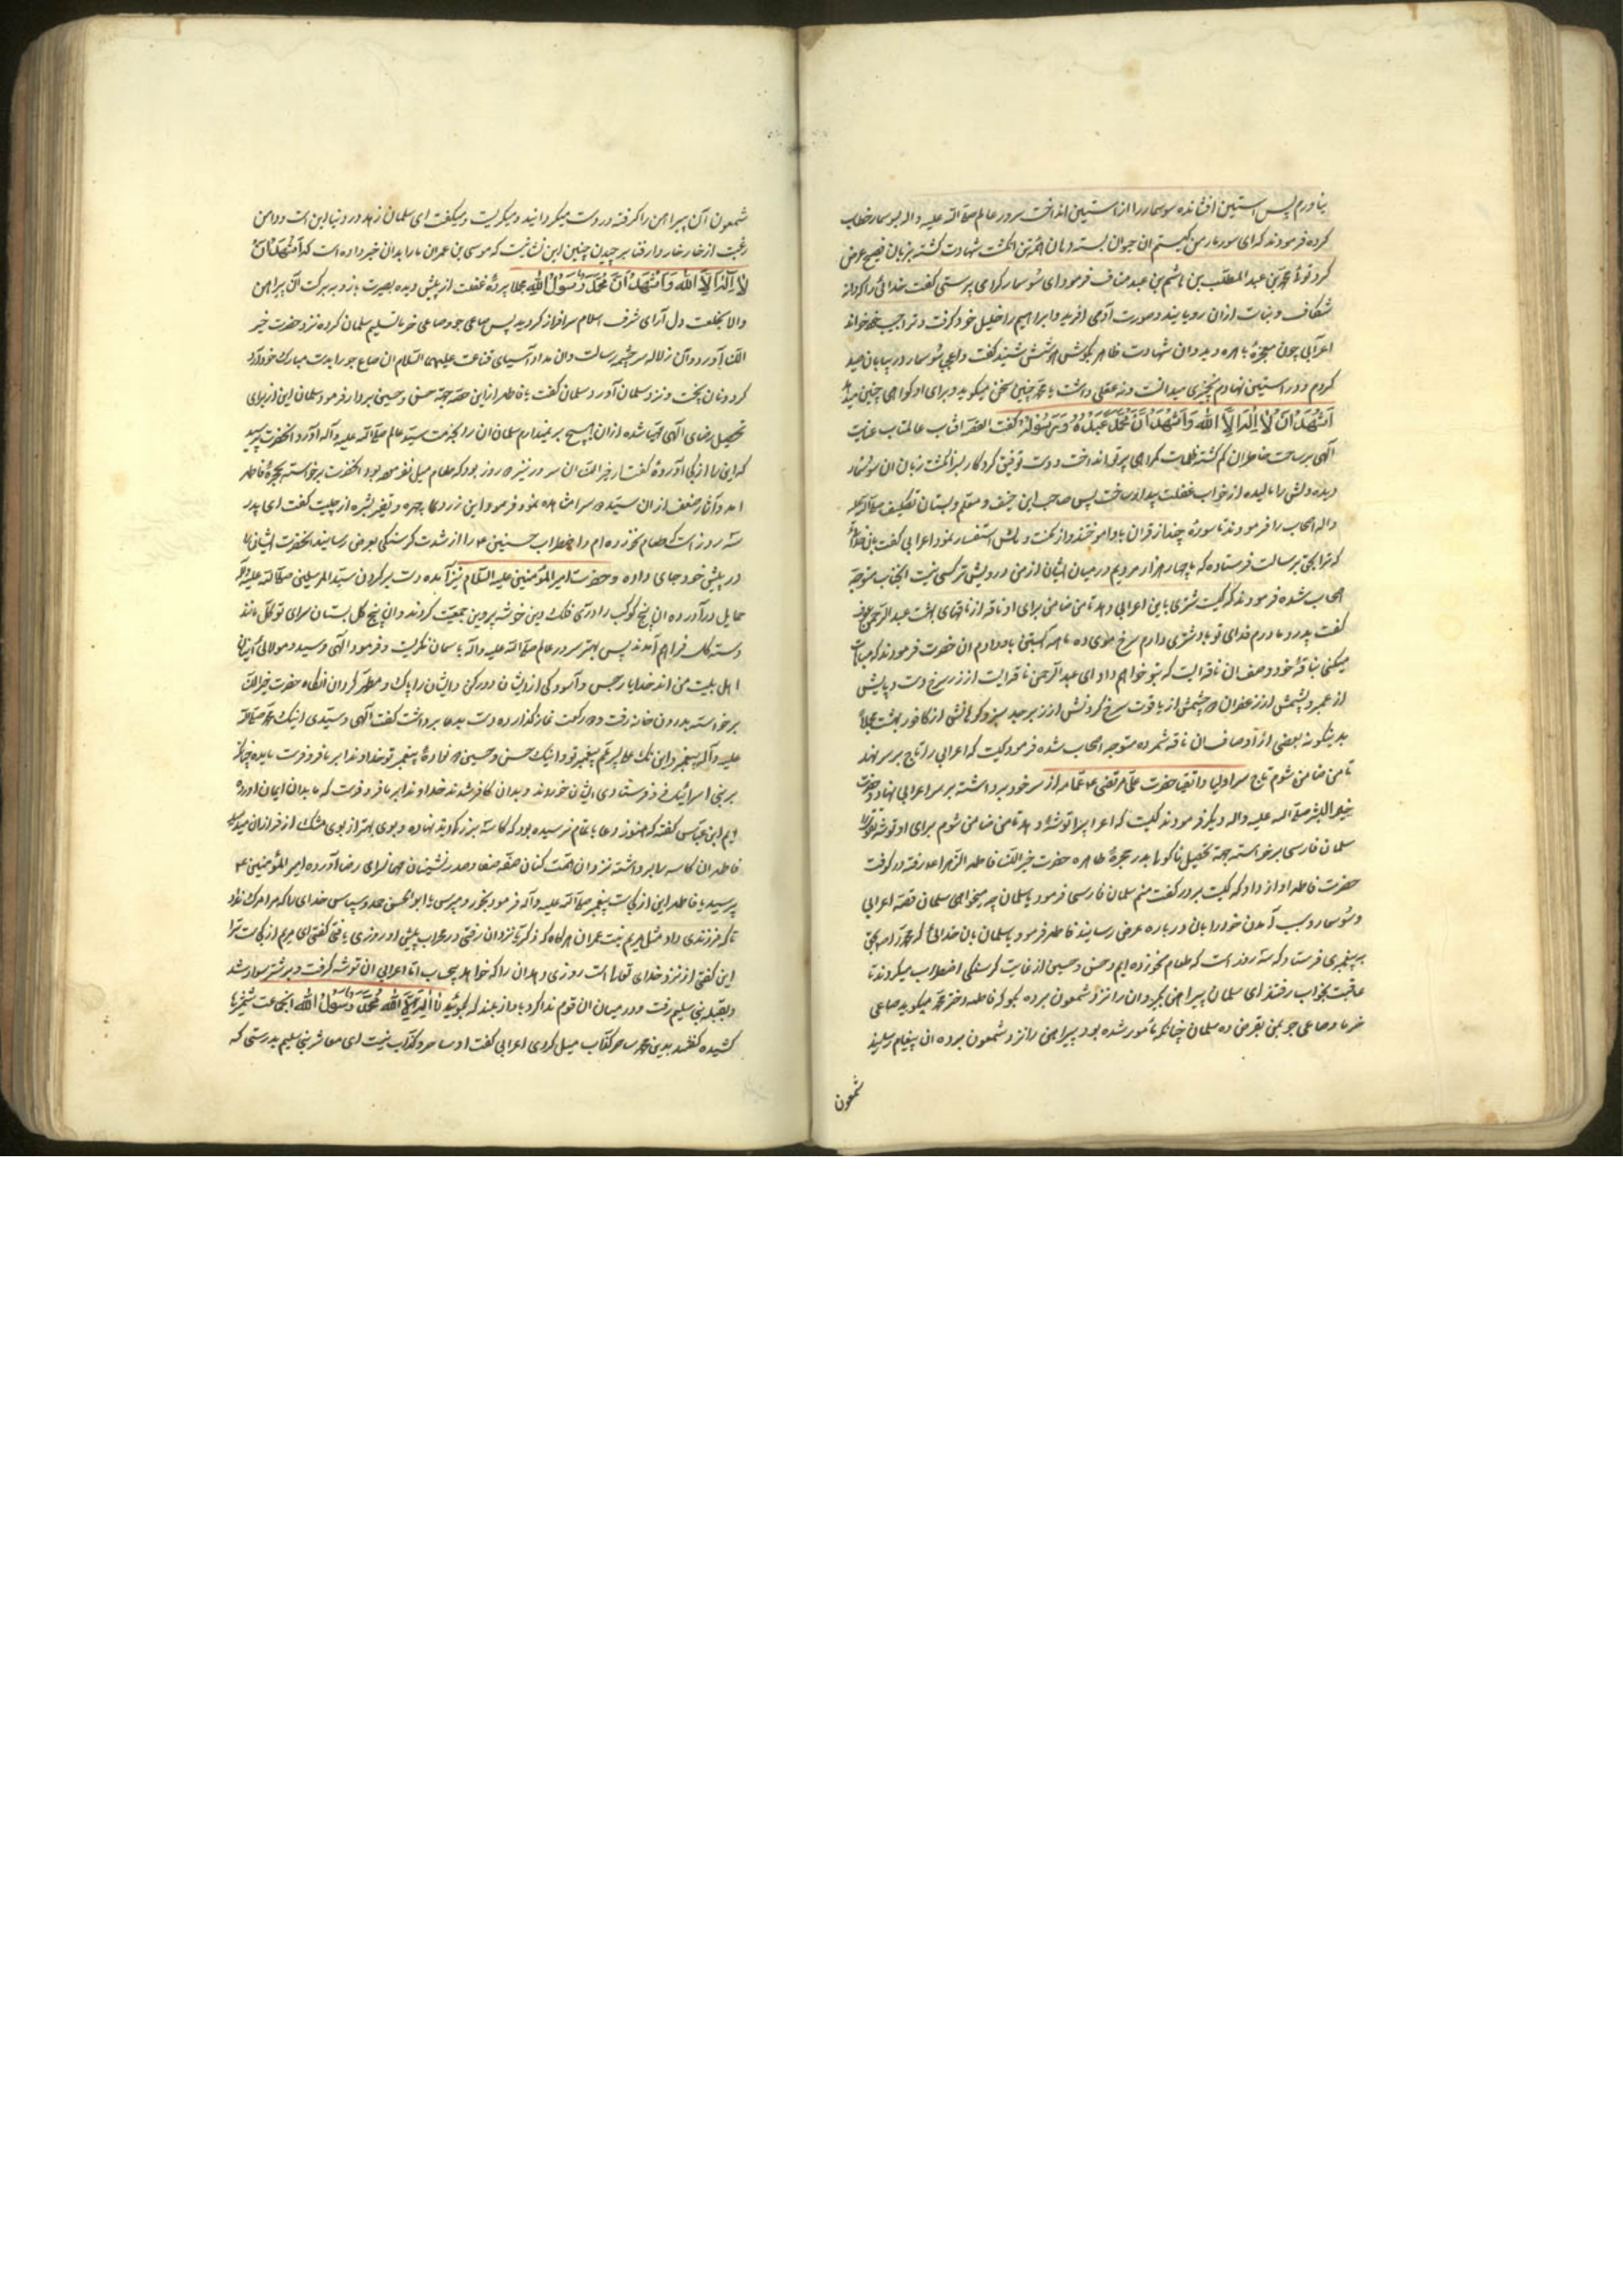 نیاورم پس استین افشانده سوسمار را از استین انداخت سرور عالم صلی الله علیه واله بسوسمار خطاب
کرده فرمودند که ای سوسمار من کیستم ان حیوان بسته دهان همه تن انکشت شهادت کشته بزبان فصیح عرض
کرد توئی محمد بن عبد المطلب بن هاشم بن عبد مناف فرمود ای سوسمار کرا می پرستی کفت خدائی را که دانه
شکافت و نبات ازان رویانید و صورت آدمی افرید و ابراهیم را خلیل خود کرفت و ترا حبیب خود خواند
اعرابی چون معجزهٔ باهره دید و ان شهادت ظاهر بکوش هوشش شنید کفت واعجبی سوسمار در بیابان صید
کردم و در استین نهادم نه چیزی میدانست و نه عقلی داشت با محمد چنین سخن میکوید و برای او کواهی چنین میدهد
اشهد ان لا اله الا الله واشهد ان محمدا عبده ورسوله کفت القصه افتاب عالمتاب عنایت
الهی بر ساحت خاطر ان کم کشته ظلمات کمراهی پرتو انداخت و دست توفیق کردکار بسرانکشت زبان ان سوسمار
دیده دلش را مالیده از خواب غفلت بیدار ساخت پس صاحب این حنیف و معلم دبستان تکلیف صلی الله علیه
واله اصحاب را فرمودند تا سورهٔ چند از قران باو اموختند و از مکنت و مالش استفسار نمود اعرابی کفت بان خدائی
که ترا بحق برسالت فرستاده که ما چهار هزار مردیم در میان ایشان از من درویش تر کسی نیست انجناب متوجه
اصحاب شده فرمودند که کیست شتری باین اعرابی دهد تا من ضامن برای او ناقه از ناقهای بهشت عبد الرحمن عوف
کفت پدر و مادرم فدای تو باد شتری دارم سرخ موی ده ماهه ابستن باو دادم ان حضرت فرمودند که مباهات
میکنی بناقهٔ خود وصف ان ناقه ایست که بتو خواهم داد ای عبد الرحمن ناقه ایست از زر سرخ دست و پایش
از عنبر و پشمش از زعفران و چشمش از یاقوت سرخ کردنش از زبرجد سبز و کوهانش از کافور بهشت مجملا
بدینکونه بعضی از اوصاف ان ناقه شمرده متوجه اصحاب شده فرمود کیست که اعرابی را تاج بر سر نهد
تا من ضامن شوم تاج سر اولیا و اتقیا حضرت علی مرتضی ع عمامه از سر خود برداشته بر سر اعرابی نهاد و حضرت
خیر البشر صلی الله علیه واله دیکر فرمودند کیست که اعرابیرا توشهٔ دهد تا من ضامن شوم برای او توشه تقوی
سلمان فارسی برخواسته جهة تحصیل ماکول بدر حجرهٔ طاهره حضرت خیر النسا فاطمه الزهرا ع رفته در کرفت
حضرت فاطمه اواز داد که کیست بر در کفت منم سلمان فارسی فرمود یا سلمان چه میخواهی سلمان قصهٔ اعرابی
و سوسمار و سبب آمدن خود را بان درباره عرض رسانید فاطمه فرمود یا سلمان بان خدائی که محمد را بحق
به پیغمبری فرستاد که سه روز است که طعام نخورده ایم و حسن و حسین از غایت کرسنکی اضطراب میکردند تا
عاقبت بخواب رفتند ای سلمان پیراهن بکیر و ان را نزد شمعون برده بکو که فاطمه دختر محمد میکوید صاعی
خرما و صاعی جو بمن بقرض ده سلمان چنانکه مأمور شده بود پیراهن را نزد شمعون برده ان پیغام رسانید
شمعون
شمعون آن پیراهن را کرفته در دست میکردانید و میکریست و میکفت ای سلمان زهد در دنیا این است و دامن
رغبت از خار خار دار فنا برچیدن چنین این نشانیست که موسی بن عمران ما را بدان خبر داده است که اشهد ان
لا اله الا الله واشهد ان محمدا رسول الله مجملا پردهٔ غفلت از پیش دیده بصیرت باز و ببرکت آن پیراهن
والا بخلعت دل آرای شرف اسلام سرافراز کردید پس صاعی جو و صاعی خرما تسلیم سلمان کرده نزد حضرت خیر
النسا آورد و آن زلاله سرچشمه رسالت وان مدار آسیای قناعت علیهما السلام ان صاع جو را بدست مبارک خود آرد
کرد و نان پخت و نزد سلمان آورد و سلمان کفت یا فاطمه از این حصه جهة حسن و حسین بردار فرمود سلمان این از برای
تحصیل رضای الهی مهیا شده ازان هیچ بر نمیدارم سلمان ان را بخدمت سید عالم صلی الله علیه وآله آورد انحضرت پرسید
که این را از کجا آوردهٔ کفت از خیر النسا ان سرور نیز سه روز بود که بطعام میل نفرموده بود انحضرت برخواسته بحجرهٔ فاطمه
امد و آثار ضعف ازان سیده سرا مشاهده نمود فرمود این زردی چهره و تغیر بشره از چیست کفت ای پدر
سه روز است که طعام نخورده ام و اضطراب حسنین ع را از شدت کرسنکی بعرض رسانید انحضرت ایشان را
در پیش خود جای داده و حضرت امیر المؤمنین علیه السلام نیز آمده دست بر کردن سید المرسلین صلی الله علیه وآله
حمایل در آورده ان پنج کوکب را دری فلک دین خوشه پروین جمعیت کردند وان پنج کل بستان سرای توکل مانند
دسته کل فراهم آمدند پس بهتر سرور عالم صلی الله علیه واله باسمان نکریست و فرمود الهی و سیدی و مولائی اینها
اهل بیت من اند خدایا رجس و آلودکی از ایشان دور کن و ایشان را پاک و مطهر کردان انکاه حضرت خیر النسا
برخواسته بدرون خانه رفت و دو رکعت نماز کذارده دست بدعا برداشت کفت الهی و سیدی اینک محمد صلی الله
علیه وآله پیغمبر و اینک علی پسر عم پیغمبر تو و اینک حسن و حسین دو نوادهٔ پیغمبر تو خداوندا بر ما فرو فرست مایده چنانکه
بر بنی اسرائیل فرو فرستادی ایشان خوردند و بدان کافر شدند خداوندا بر ما فرو فرست که ما بدان ایمان اورده
ایم ابن عباس کفته که هنوز دعا باتمام نرسیده بود که کاسه بزرک دید نهاده و بوی بهتر از بوی مشک از فراز ان میدمید
فاطمه ان کاسه را برداشته نزد ان همت کنان صفه صفا و صدرنشینان مهمانسرای رضا آورده امیر المؤمنین ع
پرسید یا فاطمه این از کجاست پیغمبر صلی الله علیه وآله فرمود بخور و مپرس یا ابوالحسن حمد و سپاس خدای را که مرا مرک نداد
تا که فرزندی داد مثل مریم بنت عمران هرکاه که زکریا نزد ان رفتی در محراب پیش او روزی یافتی کفتی ای مریم از کجاست ترا
این کفتی از نزد خدای تعالی است روزی دهد ان را که خواهد بیحساب اما اعرابی ان توشه کرفت و بر شتر سوار شد
و بقبیله بنی سلیم رفت و در میان ان قوم ندا کرد باواز بلند که بکوئید لا اله الا الله محمد رسول الله انجماعت شمشیرها
کشیده کفتند بدین محمد ساحر کذاب میل کردی اعرابی کفت او ساحر و کذاب نیست ای معاشر بنی سلیم بدرستی که